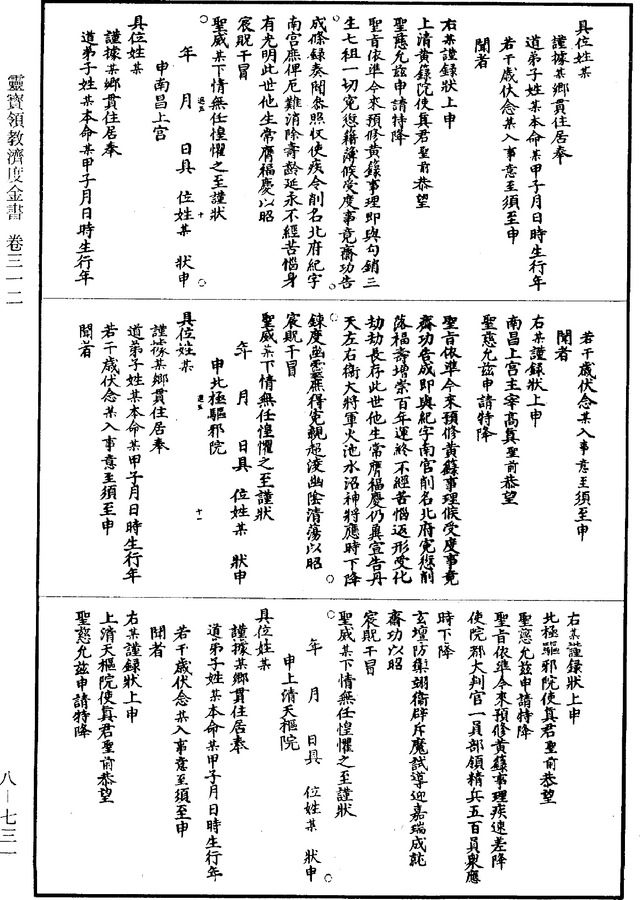 具位姓某
謹據某鄉貫住居奉
道弟子姓某本命某甲子月日時生行年
若干歲伏念某入事意至須至申
聞者
右某謹錄狀上申
上清黃籙院使真君聖前恭望
聖慈允茲申請特降
聖旨依準今來預修黃籙事理即與勾銷三
生七祖一切冤愆籍簿候受度事竟齋功告
成條錄奏聞
南宮庶俾厄難消除壽齡延永不經苦惱身
有光明此世他生常膺福慶以昭
宸貺干冒
聖威某下情無任惶懼之至謹狀
年 月 日具 位姓某 狀申
申南昌上宮
具位姓某
謹據某鄉貫住居奉
道弟子姓某本命某甲子月日時生行年
若干歲伏念某入事意至須至申
聞者
右某謹錄狀上申
南昌上宮主宰高真聖前恭望
聖慈允茲申請特降
聖旨依準今來預修黃籙事理候受度事竟
齋功告成即與紀字南宮削名北府冤愆削
落福壽增崇百年運終不經苦惱返形受化
劫劫長存此世他生常膺福慶仍冀宣告丹
天左右衛大將軍火池水沼神將應時下降
鍊度幽靈庶得冤親超凌幽陰清蕩以昭
宸貺干冒
聖威某下情無任惶懼之至謹狀
年 月 日具 位姓某 狀申
申北極驅邪院
具位姓某
謹據某鄉貫住居奉
道弟子姓某本命某甲子月日時生行年
若干歲伏念某入事意至須至申
聞者
右某謹錄狀上申
北極驅邪院使真君聖前恭望
聖慈允茲申請特降
聖旨依準今來預修黃籙事理疾速差降
使院都大判官一員部領精兵五百員乘應
時下降
玄壇防禁翊衛辟斥魔試導迎嘉瑞成就
齋功以昭
宸貺干冒
聖威某下情無任惶懼之至謹狀
年 月 日具 位姓某 狀申
申上清天樞院
具位姓某
謹據某鄉貫住居奉
道弟子姓某本命某甲子月日時生行年
若干歲伏念某入事意至須至申
聞者
右某謹錄狀上申
上清天樞院使真君聖前恭望
聖慈允茲申請特降
靈寶領教濟度金書 卷三一二
八－七三一